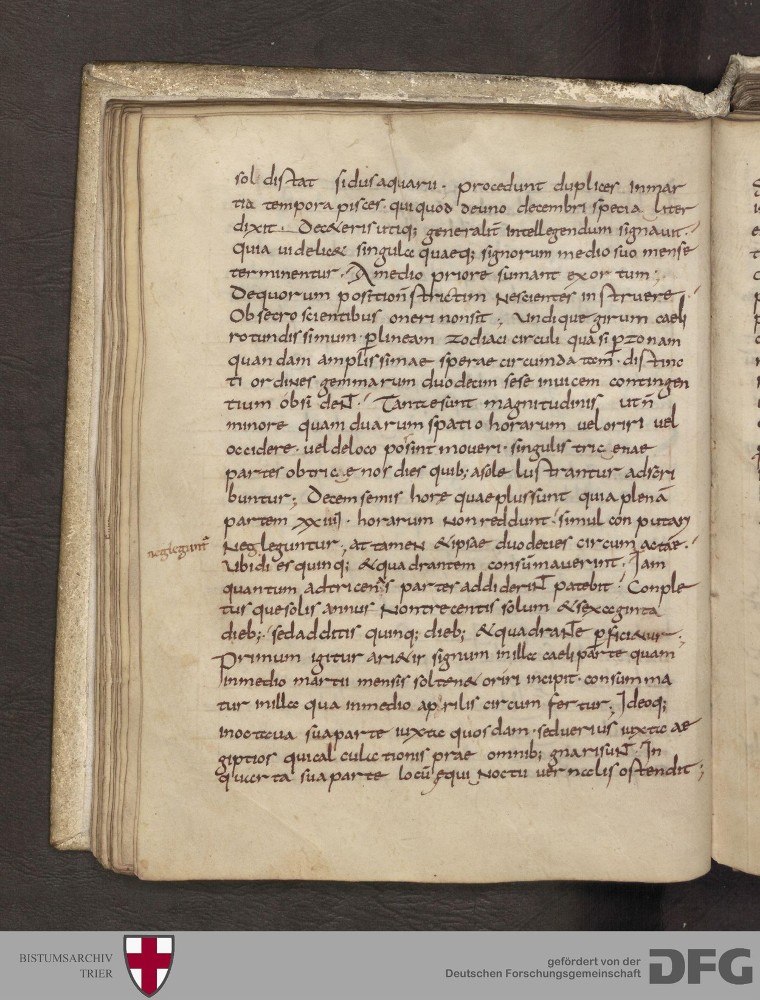 sol distat sidus aquarii · procedunt duplices in mar
tia tempora pisces · qui quod de uno decembri specia liter
dixit · De ceteris utiq; generalit intellegendum signavit ·
quia videlicet singula quaeq; signorum medio suo mense
terminentur · A medio priore sumant exortum ;
De quorum position strictim Nescientes in struere ·
Obsecro scientibus oneri non sit ; undique girum caeli
rotundissimum · p lineam zodiaci circuli quasi p zonam
quandam amplissimae sperae circumdatom · distinc
ti ordines gemmarum duodecim sese invicem contingen
tium obsident · Tantae sunt magnitudinis ut n
minore quam duarum spatio horarum vel oriri vel
occidere · vel de loco possint moveri · singulis tricenae
partes ob tricenos dies quib; a sole lustrantur adscri
buntur ; Decem semis hore quae plus sunt quia plena
partem xxiiii · horarum Non reddunt · simul conputari
neglegunt
Negleguntur · at tamen & ipsae duodecies circum actae ·
Ubi dies quinq; & quadrantem consumaverint · Iam
quantum ad tricenas parter addiderint patebit · Conple
tusque solis annus Non trecentis solum & sexaginta
dieb; · sed additis quinq; dieb; & quadrante pficietur ;
Primum igitur arietir signum in illa caeli parte quam
in medio martii mensis sol tenet oriri incipit · consumma
tur in illa qua in medio aprilis circum fertur ; Ideoq;
in octava sua parte iuxta quosdam · sed verius iuxta ae
giptios qui calculationis prae omnib; gnari sunt · In
quarta sua parte locu equi Noctii vernalis ostendit ;
BISTUMSARCHIV
TRIER
gefördert von der
Deutschen Forschungsgemeinschaft
DFG